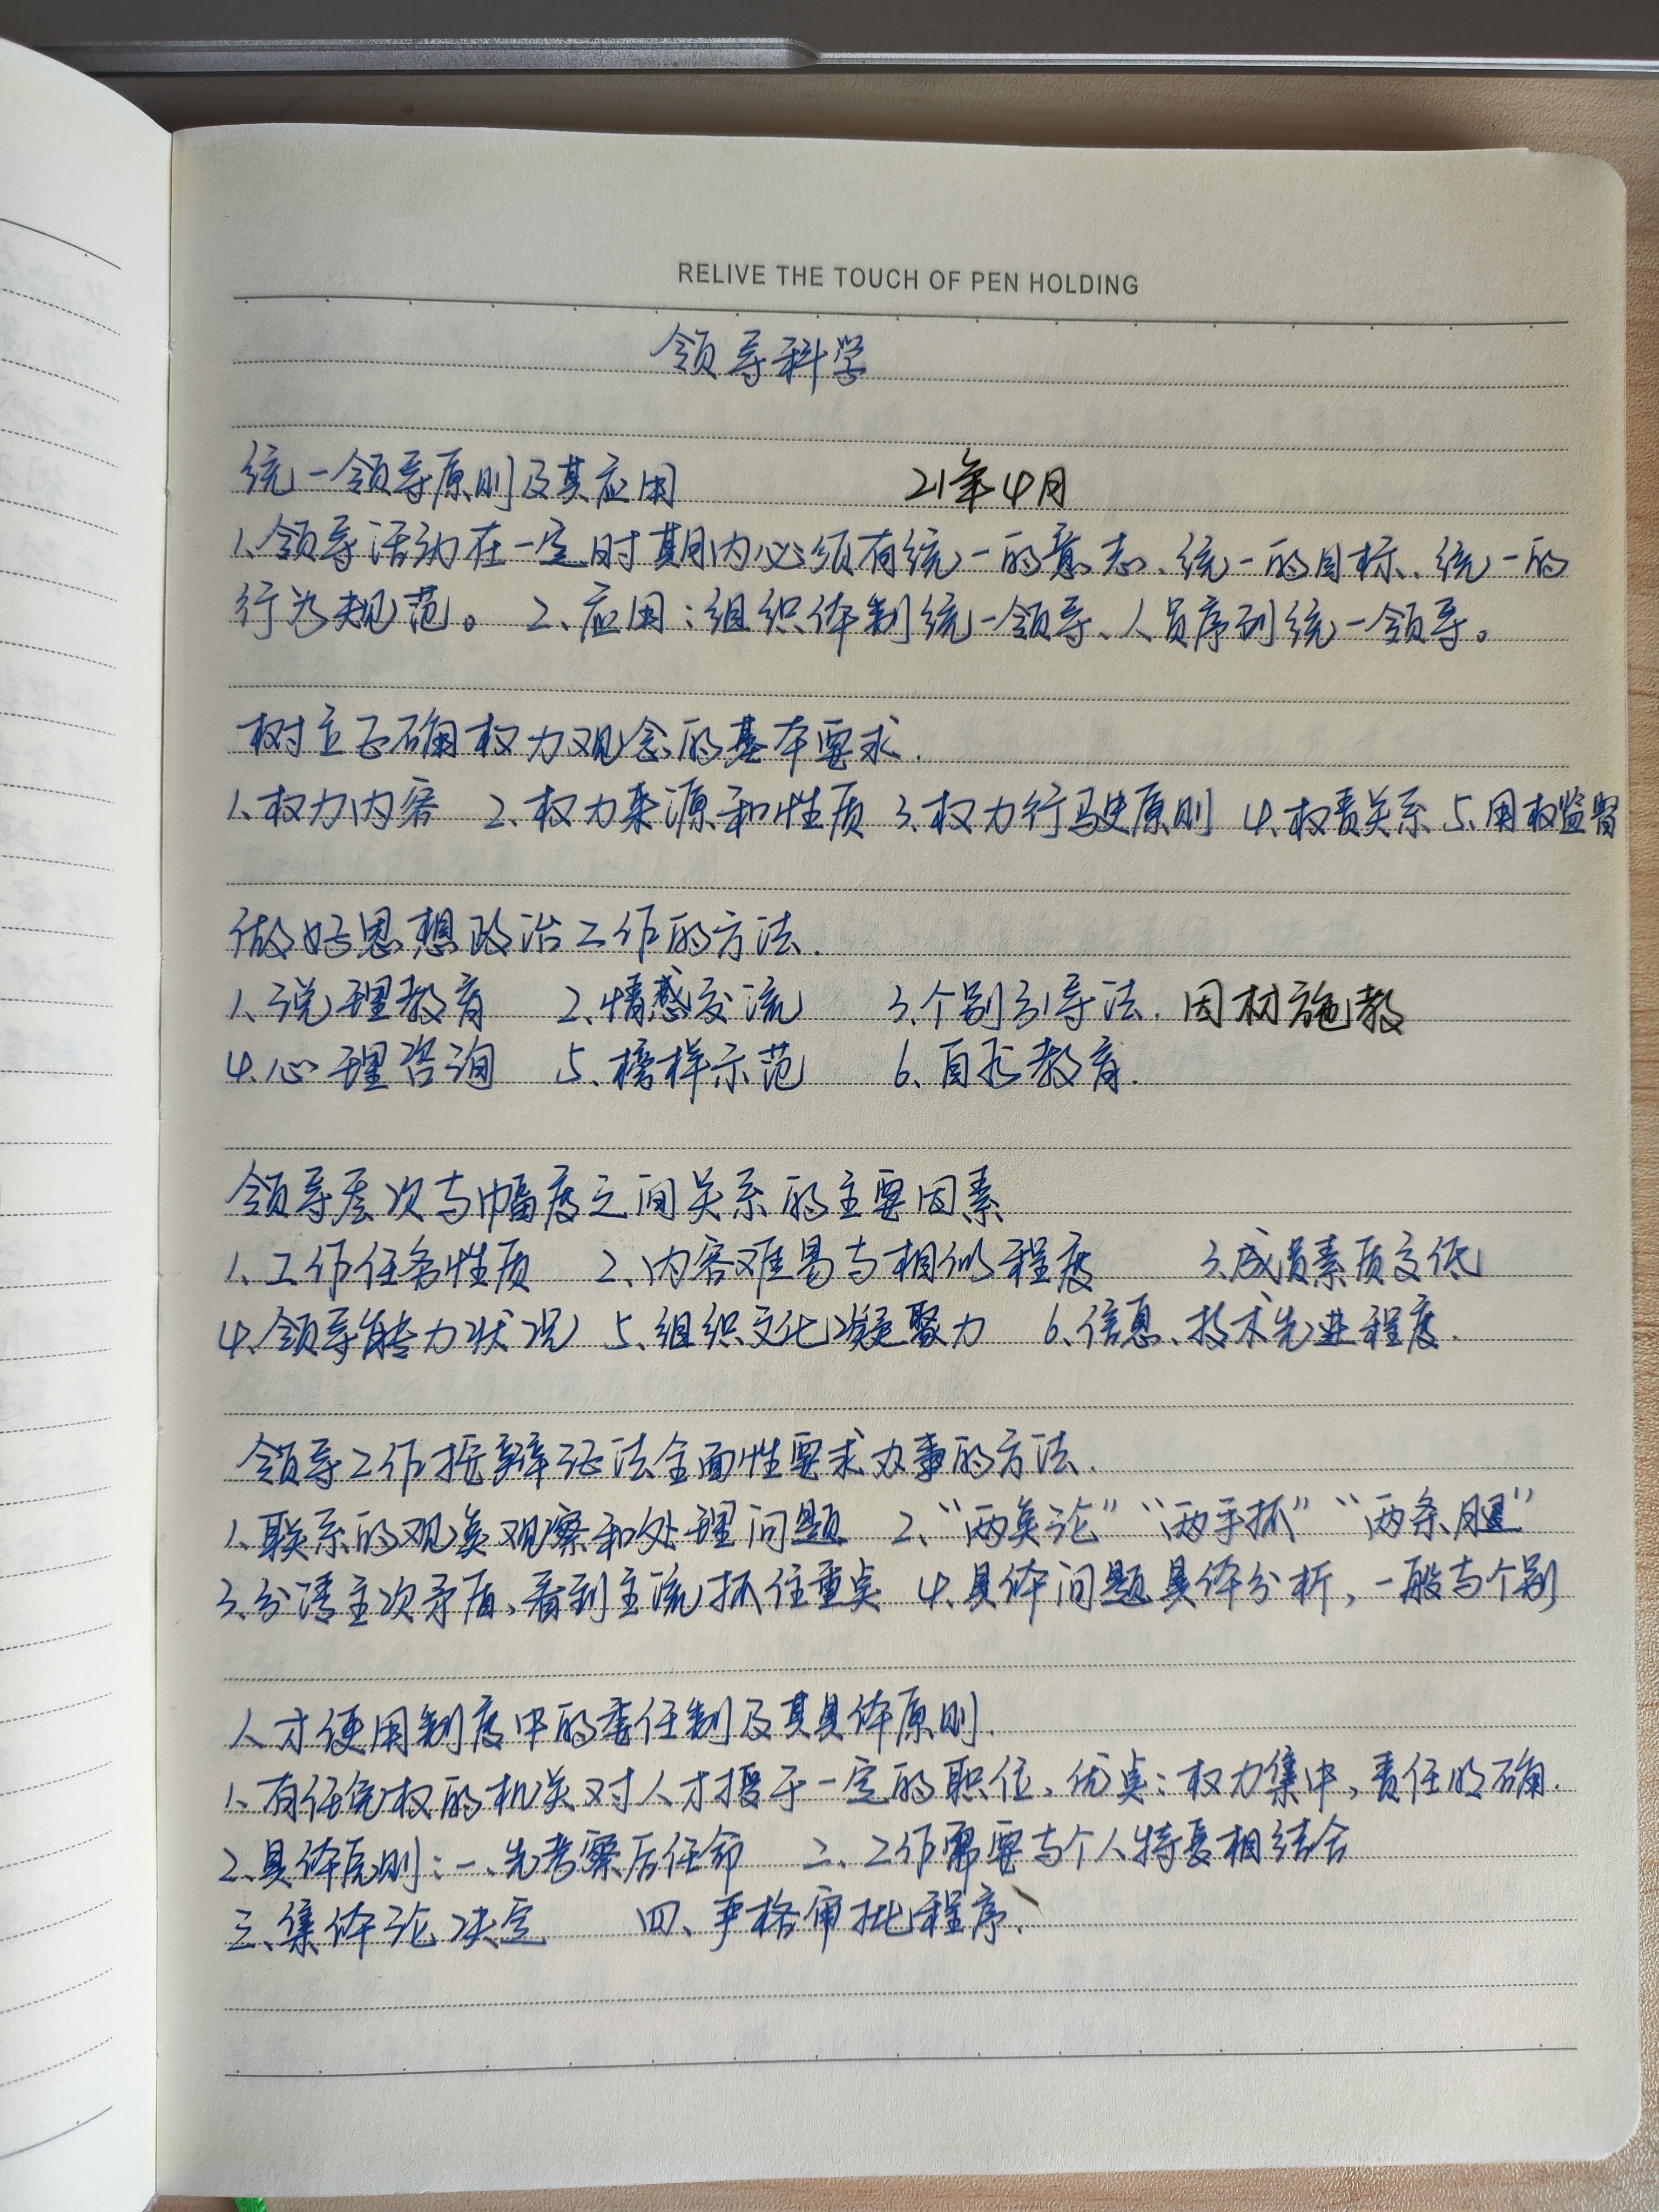 RELIVE THE TOUCH OF PEN HOLDING
领导科学
统一领导原则及其应用 21年4月
1、领导活动在一定时期内必须有统一的意志、统一的目标、统一的
行为规范。 2、应用：组织体制统一领导、人员序列统一领导。
树立正确权力观念的基本要求.
1、权力内容 2、权力来源和性质 3、权力行驶原则 4、权责关系 5、用权监督
做好思想政治工作的方法.
1、说理教育 2、情感交流 3、个别引导法. 因材施教
4、心理咨询 5、榜样示范 6、自我教育.
领导层次与幅度之间关系的主要因素
1、工作任务性质 2、内容难易与相似程度 3、成员素质高低
4、领导能力状况 5、组织文化凝聚力 6、信息、技术先进程度.
领导工作按辩证法全面性要求办事的方法.
1、联系的观点观察和处理问题 2、“两点论”“两手抓”“两条腿”
3、分清主次矛盾、看到主流抓住重点 4、具体问题具体分析，一般与个别
人才使用制度中的委任制及其具体原则.
1、有任免权的机关对人才授予一定的职位、优点：权力集中，责任明确.
2、具体原则：一、先考察后任命 二、工作需要与个人特长相结合
三、集体讨论决定 四、严格审批程序、